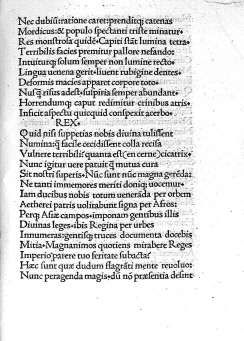 Nec dubi ratione caret: prenditq; catenas
Mordicus: & populo spectanti triste minatur.
Res monstrosa quidē. Capiti stāt lumina tetra
Terribilis facies premitur pallore nefando:
Intuiturq; solum semper non lumine recto:
Lingua uenena gerit: liuent rubigine dentes:
Deformis macies apparet corpore toto.
Nusq̄ risus adest: suspiria semper abundant:
Horrendumq; caput redimitur crinibus atris.
Inficit aspectu quicquid conspexit acerbo.
REX.
Quid nisi suppetias nobis diuina tulissent
Numina: q̄ facile cecidissent colla recisa
Vulnere terribili: quanta est (en cerne) cicatrix.
Nunc igitur uere patuit q̄ mutua cura
Sit nostri superis. Nūc sunt nūc magna gerēda:
Ne tanti immemores meriti doniq; uocemur.
Iam ducibus nobis totum ueneräda per orbem
Aetherei patris uolitabunt signa per Afros:
Perq; Asiæ campos. imponam gentibus illis
Diuinas leges. ibis Regina per urbes
Innumeras: gentisq; truces documenta docebis
Mitia. Magnanimos quotiens mirabere Reges
Imperio parere tuo feritate subacta?
Hæc sunt quæ dudum flagrāti mente reuoluo:
Nunc peragenda magis: dū nō præsentia desint